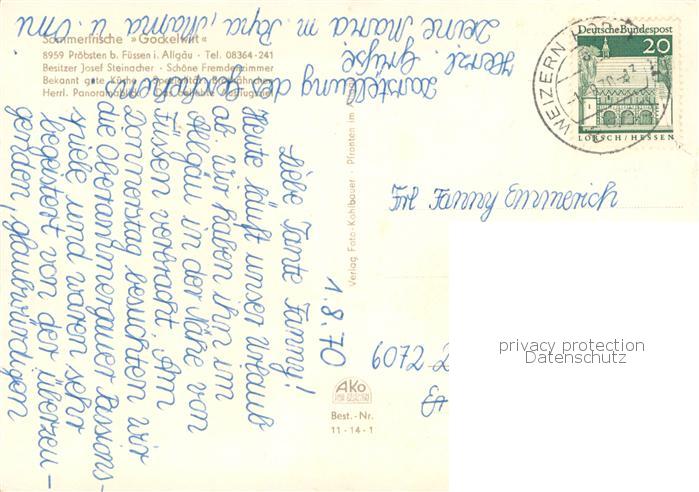 Sommerfrische »Gockelwirt«
8959 Pröbsten b. Füssen i. Allgäu · Tel. 08364-241
Besitzer Josef Steinacher · Schöne Fremdenzimmer
Bekannt gute Küche
Herrl. Panoramablick
1.8.70
Liebe Tante Fanny!
Heute läuft unser Urlaub
ab. Wir haben ihn im
Allgäu in der Nähe von
Füssen verbracht. Am
Donnerstag besuchten wir
die Oberammergauer Passions-
spiele und waren sehr
begeistert von der überzeu-
genden, glaubwürdigen
Darstellung der
Herzl. Grüße
Deine Maria m. Papa, Mama u. Omi
Verlag Foto-Kohlbauer · Pfronten im
AKo
Best.-Nr.
11-14-1
Deutsche Bundespost
20
LORSCH/HESSEN
WEIZERN-HOPF
Frl Fanny Emmerich
6072-2
privacy protection
Datenschutz